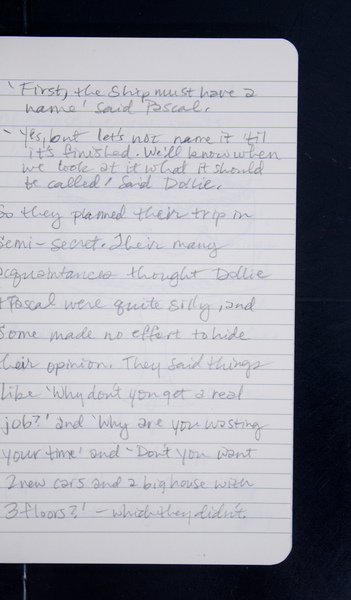 'First, the Ship must have a
name' said Pascal.
- Yes, but let's not name it 'til
it's finished. We'll know when
we look at it what it should
be called' said Dollie.
So they planned their trip in
semi-secret. Their many
acquaintances thought Dollie
+ Pascal were quite silly, and
Some made no effort to hide
their opinion. They said things
like 'Why don't you get a real
job?' and 'Why are you wasting
your time' and - Don't you want
2 new cars and a big house with
3 floors?' - which they didn't.